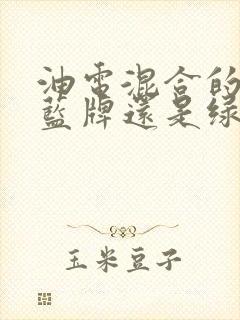 油電混合的
藍牌還是綠
玉米豆子